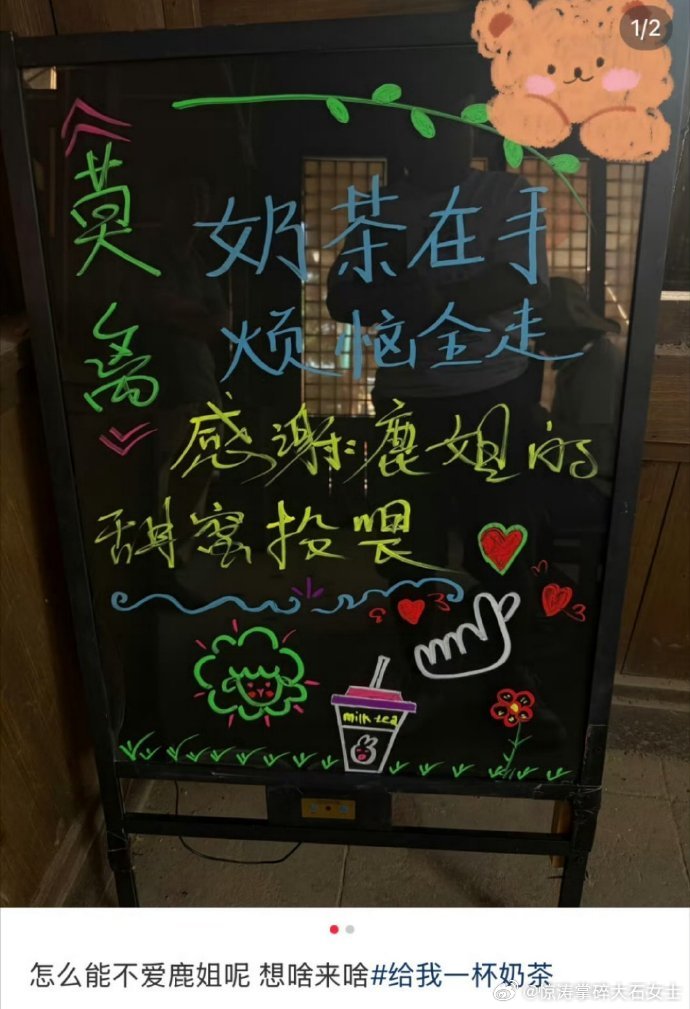 1/2
《莫离》
奶茶在手
烦恼全走
感谢鹿姐的
甜蜜投喂
milk tea
怎么能不爱鹿姐呢 想啥来啥#给我一杯奶茶
@惊涛掌碎大石女士